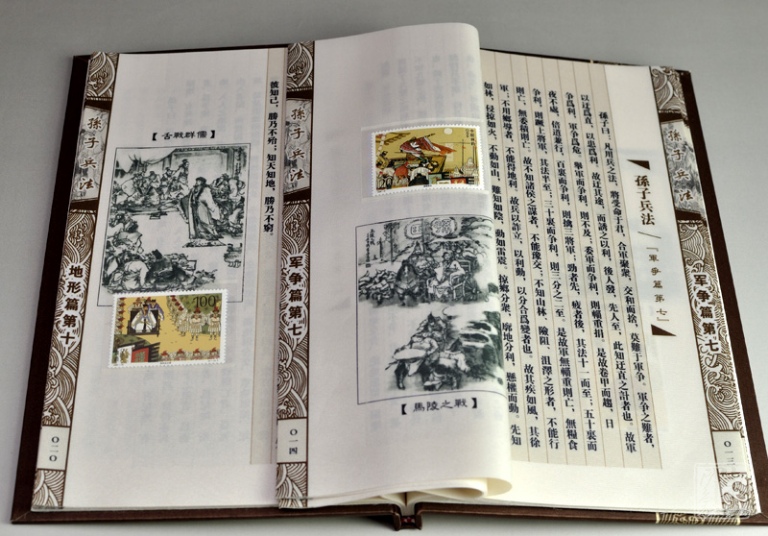 孫子兵法
军争篇第七
〇一三
孫子兵法／『軍争篇第七』
孫子曰：凡用兵之法，將受命于君，合軍聚衆，交和而捨，莫難于軍争。軍争之難者，
以迂爲直，以患爲利。故迂其途，而誘之以利，後人發，先人至，此知迂直之計者也。故軍
争爲利，軍争爲危。舉軍而争利，則不及；委軍而争利，則輜重捐。是故卷甲而趨，日
夜不處，倍道兼行，百裏而争利，則擒三將軍；勁者先，疲者後，其法十一而至；五十裏而
争利，則蹶上將軍，其法半至；三十裏而争利，則三分之二至。是故軍無輜重則亡，無糧食
則亡，無委積則亡。故不知諸侯之謀者，不能豫交；不知山林、險阻、沮澤之形者，不能行
軍；不用鄉導者，不能得地利。故兵以詐立，以利動，以分合爲變者也。故其疾如風，其徐
如林，侵掠如火，不動如山，難知如陰，動如雷震。掠鄉分衆，廓地分利，懸權而動。先知
【馬陵之戰】
孫子兵法
军争篇第七
〇一四
彼知己，勝乃不殆；知天知地，勝乃不窮。
【舌戰群儒】
100
孫子兵法
地形篇第十
〇二〇